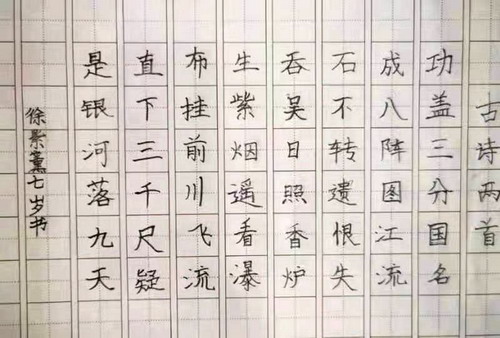 古诗两首
功盖三分国名
成八阵图江流
石不转遗恨失
吞吴日照香炉
生紫烟遥看瀑
布挂前川飞流
直下三千尺疑
是银河落九天
徐景薰七岁书